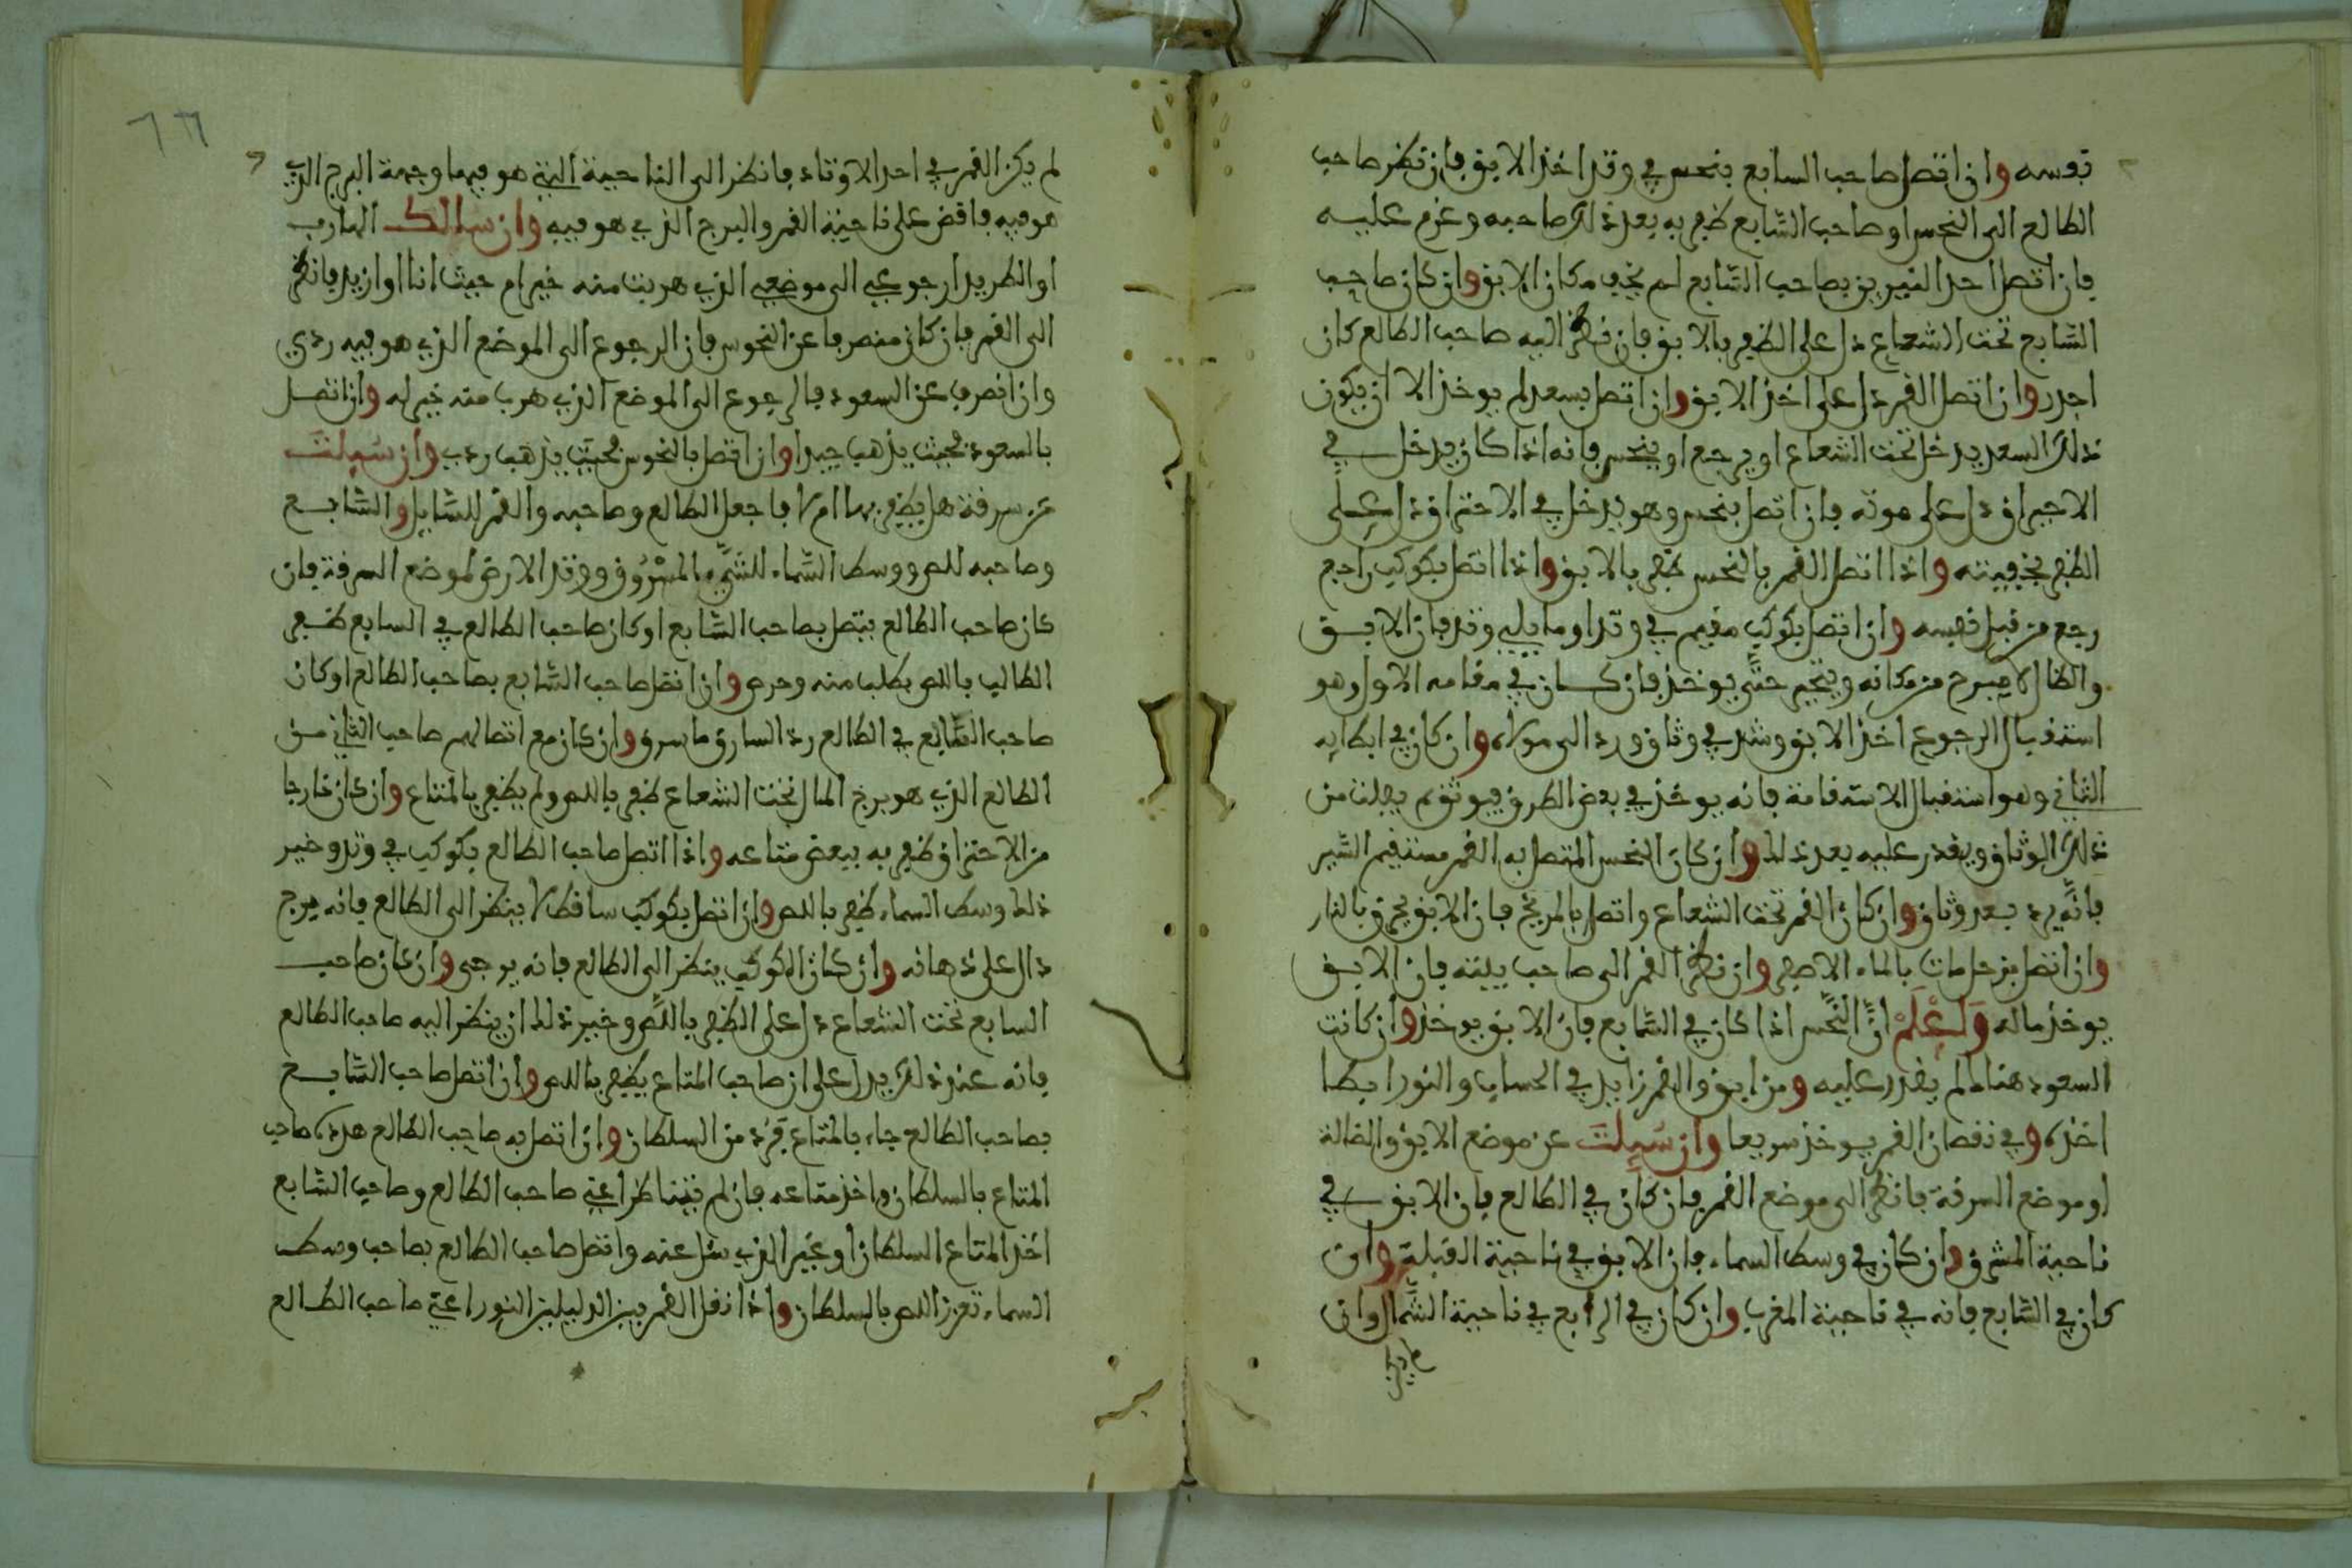 نفسه وان اتصل صاحب السابع بنحس في وتد اخذ الابق فان نظر صاحب
الطالع الى النحس او صاحب السابع ظفر به بعد ذلك صاحبه وغرم عليه
فان اتصل احد النيرين بصاحب السابع لم يخف مكان الابق وان كان صاحب
السابع تحت الشعاع دل على الظفر بالابق فان نظر اليه صاحب الطالع كان
اجدر وان اتصل القمر دل على اخذ الابق وان اتصل بسعد لم يوخذ الا ان يكون
ذلك السعد يدخل تحت الشعاع او يرجع او ينحس فانه اذا كان يدخل في
الاحتراق دل على موته فان اتصل بنحس وهو يدخل في الاحتراق دل على
الظفر بجيفته واذا اتصل القمر بالنحس ظفر بالابق واذا اتصل بكوكب راجع
رجع من قبل نفسه وان اتصل بكوكب مقيم في وتد او ما يلي وتد فان الابق
والضال لا يبرح من مكانه ويتحير حتى يوخذ فان كان في مقامه الاول وهو
استقبال الرجوع اخذ الابق وشد في وثاق ورد الى مولاه وان كان في ابطايه
الثاني وهو استقبال الاستقامة فانه يوخذ في بعض الطرق فيوثق ثم يفلت من
ذلك الوثاق ويقدر عليه بعد ذلك وان كان النحس المتصل به القمر مستقيم السير
فانه يرد بعد وثاق وان كان القمر تحت الشعاع واتصل بالمريخ فان الابق يحرق بالنار
وان اتصل بزحل مات بالماء الاصفر وان نظر القمر الى صاحب بيته فان الابق
يوخذ ماله ولتعلم ان النحس اذا كان في السابع فان الابق يوخذ وان كانت
السعود هناك لم يقدر عليه ومن ابق والقمر زايد في الحساب والنور ابطا
اخذه وفي نقصان القمر يوخذ سريعا وان سيلت عن موضع الابق والضالة
او موضع السرقة فانظر الى موضع القمر فان كان في الطالع فان الابق في
ناحية المشرق وان كان في وسط السماء فان الابق في ناحية القبلة وان
كان في السابع فانه في ناحية المغرب وان كان في الرابع في ناحية الشمال وان
لم يكن
٦٦
لم يكن القمر في احد الاوتاد فانظر الى الناحية التي هو فيها وجهة البرج الذي
هو فيه فاقض على ناحية القمر والبرج الذي هو فيه وان سالك الهارب
او الطريد ارجوعي الى موضعي الذي هربت منه خير ام حيث انا اوازيد فانظر
الى القمر فان كان منصرفا عن النحوس فان الرجوع الى الموضع الذي هو فيه ردي
وان انصرف عن السعود فالرجوع الى الموضع الذي هرب منه خير له وان اتصل
بالسعود فحيث يذهب جيدا وان اتصل بالنحوس فحيث يذهب ردي وان سيلت
عن سرقة هل يظفر بها ام لا فاجعل الطالع وصاحبه والقمر للسايل والسابع
وصاحبه للص ووسط السماء للشيء المسروق ووتد الارض لموضع السرقة فان
كان صاحب الطالع يتصل بصاحب السابع او كان صاحب الطالع في السابع ظفر
الطالب باللص بطلب منه وحرص وان اتصل صاحب السابع بصاحب الطالع او كان
صاحب السابع في الطالع رد السارق ما سرق وان كان مع اتصالهم صاحب الثاني من
الطالع الذي هو برج المال تحت الشعاع ظفر باللص ولم يظفر بالمتاع وان كان خارجا
من الاحتراق ظفر به ببعض متاعه واذا اتصل صاحب الطالع بكوكب في وتد وخير
ذلك وسط السماء ظفر باللص وان اتصل بكوكب ساقط لا ينظر الى الطالع فانه يرج
دال على ذهابه وان كان الكوكب ينظر الى الطالع فانه يرجى وان كان صاحب
السابع تحت الشعاع دل على الظفر باللص وخير ذلك ان ينظر اليه صاحب الطالع
فانه عند ذلك يدل على ان صاحب المتاع يظفر باللص وان اتصل صاحب السابع
بصاحب الطالع جاء بالمتاع فرده من السلطان وان اتصل به صاحب الطالع هدده صاحب
المتاع بالسلطان واخذ متاعه فان لم يتناظرا اعني صاحب الطالع وصاحب السابع
اخذ المتاع السلطان او غير الذي سيل عنه واتصل صاحب الطالع بصاحب وسط
السماء تعزز اللص بالسلطان واذا نقل القمر بين الدليلين النور اعني صاحب الطالع